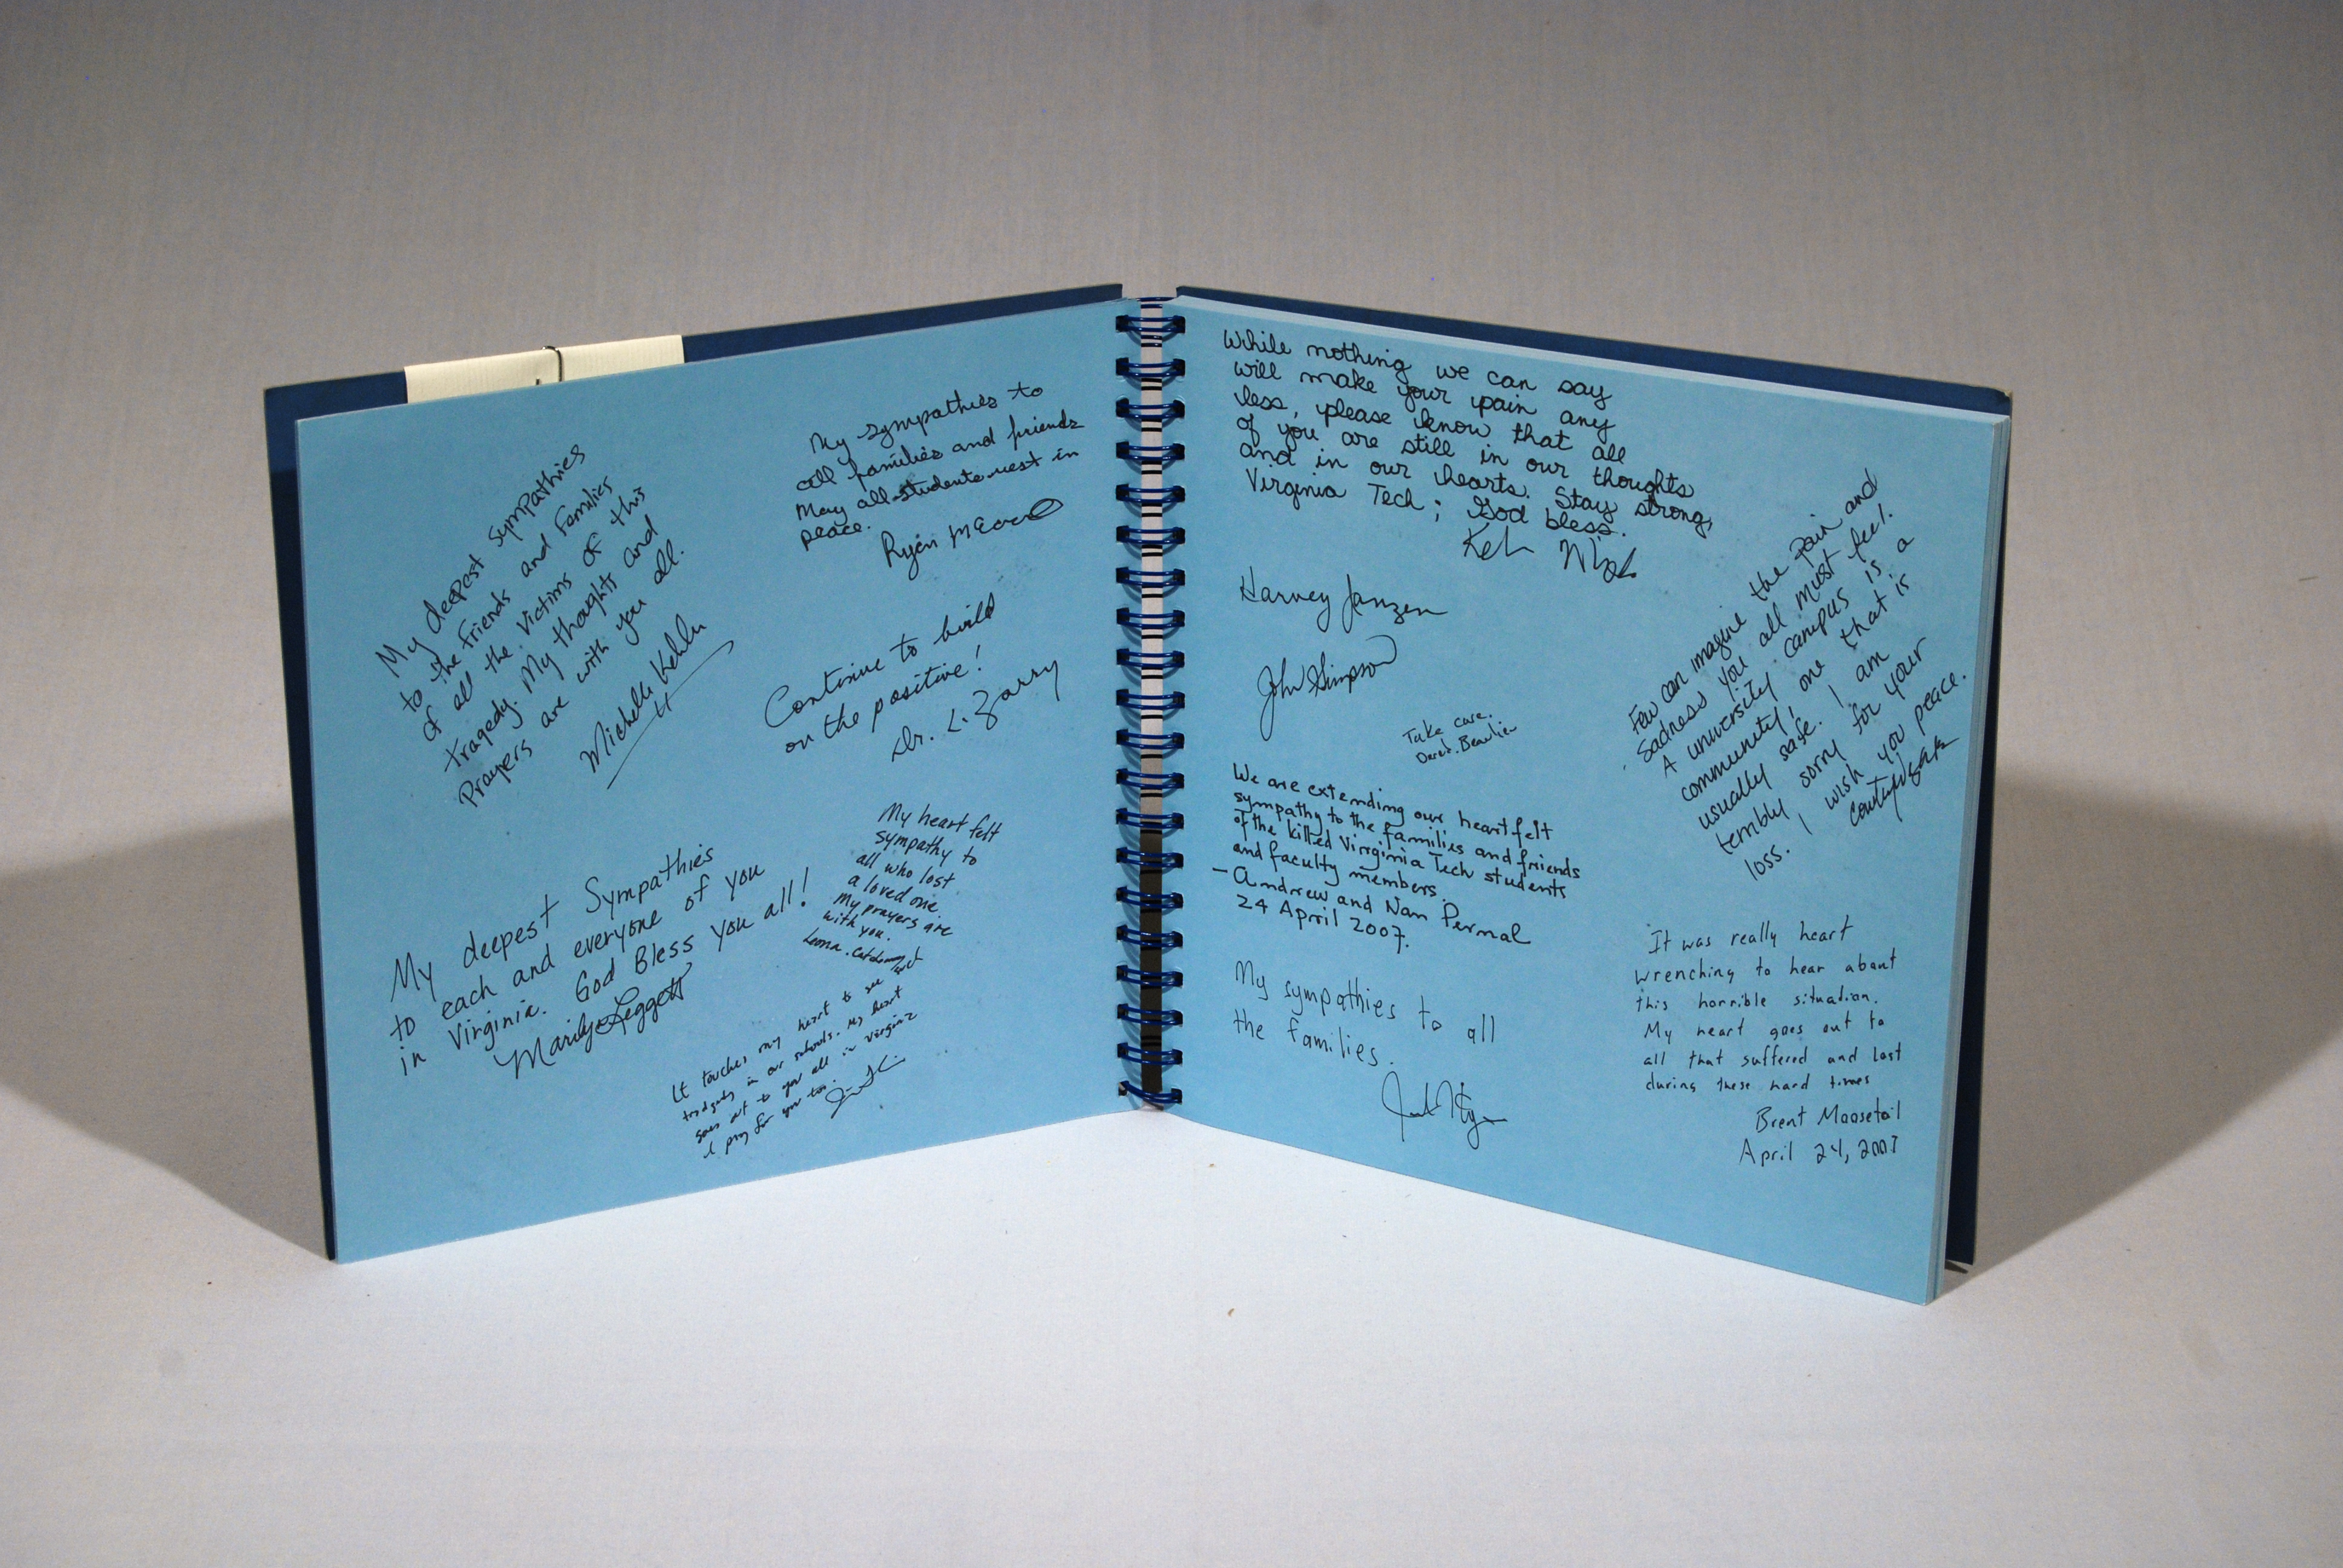 My deepest sympathies
to the friends and families
of all the victims of this
tragedy. My thoughts and
Prayers are with you all.
Michelle
My sympathies to
all families and friends
may all students rest in
peace.
Ryan
Continue to build
on the positive!
Dr. L. Zarry
My deepest Sympathies
to each and everyone of you
in Virginia. God Bless you all!
Marilyn Leggett
My heart felt
sympathy to
all who lost
a loved one
My prayers are
with you.
Leona.
It touches my heart to see
in our schools. My heart
goes out to you all in Virginia
I pray for you too.
While nothing we can say
will make your pain any
less, please know that all
of you are still in our thoughts
and in our hearts. Stay strong,
Virginia Tech; God bless.
Harvey Janzen
John Simpson
Take care.
Derek. Beaulieu
We are extending our heartfelt
sympathy to the families and friends
of the killed Virginia Tech students
and faculty members.
- Andrew and Nan Pernal
24 April 2007.
My sympathies to all
the families.
Few can imagine the pain and
sadness you all must feel.
A university campus is a
community, one that is
usually safe. I am
terribly sorry for your
loss. I wish you peace.
It was really heart
wrenching to hear about
this horrible situation.
My heart goes out to
all that suffered and lost
during these hard times
Brent Moosetail
April 24, 2007